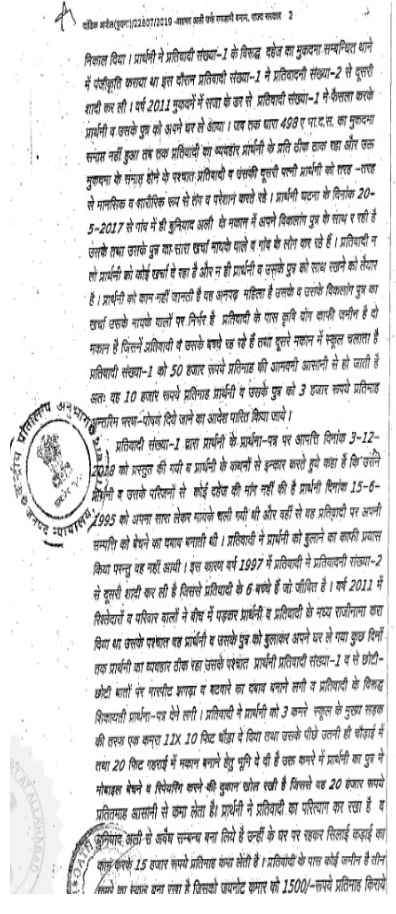 दांडिक अपील(मुकदमा)/22807/2019 -अख्तर अली उर्फ रमजानी बनाम, राज्य सरकार 2
निकाल दिया। प्रार्थनी ने प्रतिवादी संख्या-1 के विरूद्ध दहेज का मुकदमा सम्बन्धित थाने
में पंजीकृति कराया था इस दौरान प्रतिवादी संख्या-1 ने प्रतिवादनी संख्या-2 से दूसरी
शादी कर ली। वर्ष 2011 मुकदमें में सजा के डर से प्रतिवादी संख्या-1 ने फैसला करके
प्रार्थनी व उसके पुत्र को अपने घर ले आया। जब तक धारा 498ए भा.द.स. का मुकदमा
समाप्त नहीं हुआ तब तक प्रतिवादी का व्यवहार प्रार्थनी के प्रति ठीक ठाक रहा और उक्त
मुकदमा के समाप्त होने के पश्चात प्रतिवादी व उसकी दूसरी पत्नी प्रार्थनी को तरह -तरह
से मानसिक व शारीरिक रूप से तंग व परेशान करते रहे। प्रार्थनी घटना के दिनांक 20-
5-2017 से गांव में ही बुनियाद अली के मकान में अपने विकलांग पुत्र के साथ रह रही है
उसके तथा उसके पुत्र का सारा खर्चा मायके वाले व गांव के लोग कर रहे हैं। प्रतिवादी न
तो प्रार्थनी को कोई खर्चा दे रहा है और न ही प्रार्थनी व उसके पुत्र को साथ रखने को तैयार
है। प्रार्थनी को काम नहीं जानती है वह अनपढ़ महिला है उसके व उसके विकलांग पुत्र का
खर्चा उसके मायके वालों पर निर्भर है प्रतिवादी के पास कृषि योग काफी जमीन है दो
मकान है जिसमें प्रतिवादी व उसके बच्चे रह रहे हैं तथा दूसरे मकान में स्कूल चलाता है
प्रतिवादी संख्या-1 को 50 हजार रूपये प्रतिमाह की आमदनी आसानी से हो जाती है
अतः वह 10 हजार रूपये प्रतिमाह प्रार्थनी व उसके पुत्र को 3 हजार रूपये प्रतिमाह
अन्तरिम भरण-पोषण दिये जाने का आदेश पारित किया जाये।
प्रतिवादी संख्या-1 द्वारा प्रार्थनी के प्रार्थना-पत्र पर आपत्ति दिनांक 3-12-
2018 को प्रस्तुत की गयी व प्रार्थनी के कथनों से इन्कार करते हुये कहा है कि उसने
प्रार्थनी व उसके परिजनों से कोई दहेज की मांग नहीं की है प्रार्थनी दिनांक 15-6-
1995 को अपना सारा लेकर मायके चली गयी थी और वहीं से वह प्रतिवादी पर अपनी
सम्पत्ति को बेचने का दबाव बनाती थी। प्रतिवादी ने प्रार्थनी को बुलाने का काफी प्रयास
किया परन्तु वह नहीं आयी। इस कारण वर्ष 1997 में प्रतिवादी ने प्रतिवादनी संख्या-2
से दूसरी शादी कर ली है जिससे प्रतिवादी के 6 बच्चे हैं जो जीवित है। वर्ष 2011 में
रिश्तेदारों व परिवार वालों ने बीच में पड़कर प्रार्थनी व प्रतिवादी के मध्य राजीनामा करा
दिया था उसके पश्चात वह प्रार्थनी व उसके पुत्र को बुलाकर अपने घर ले गया कुछ दिनों
तक प्रार्थनी का व्यवहार ठीक रहा उसके पश्चात प्रार्थनी प्रतिवादी संख्या-1 व से छोटी-
छोटी बातों पर मारपीट झगड़ा व बटवारे का दबाव बनाने लगी व प्रतिवादी के विरूद्ध
शिकायती प्रार्थना-पत्र देने लगी। प्रतिवादी ने प्रार्थनी को 3 कमरे स्कूल के मुख्य सड़क
की तरफ एक कमरा 11X 10 फिट चौड़ा दे दिया तथा उसके पीछे उतनी ही चौड़ाई में
तथा 20 फिट गहराई में मकान बनाने हेतु भूमि दे दी है उक्त कमरे में प्रार्थनी का पुत्र ने
मोबाइल बेचने व रिपेयरिंग करने की दुकान खोल रखी है जिससे वह 20 हजार रूपये
प्रतितमाह आसानी से कमा लेता है। प्रार्थनी ने प्रतिवादी का परित्याग कर रखा है व
बुनियाद अली से अवैध सम्बन्ध बना लिये है उन्हीं के घर पर रहकर सिलाई कढ़ाई का
काम करके 15 हजार रूपये प्रतिमाह कमा लेती है। प्रतिवादी के पास कोई जमीन है तीन
कमरे का स्कूल बना रखा है जिसको कुमार को 1500/-रूपये प्रतिमाह किराये